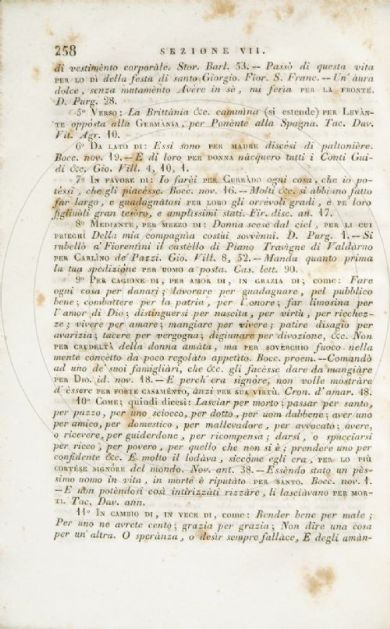 258 SEZIONE VII.
di vestimènto corporàle. Stor. Barl. 53. — Passò di questa vita
PER LO DÌ della festa di santo Giorgio. Fior. S. Franc. — Un' àura
dolce, senza mutamènto Avère in sè, mi feria PER LA FRONTE.
D. Purg. 28.
5º VERSO: La Brittània &c. cammìna (si estende) PER LEVÀN-
TE opposta alla GERMÀNIA, per Ponènte alla Spagna. Tac. Dav.
Vit. Agr. 10.
6º DA LATO DI: Essi sono PER MADRE discèsi di paltonière.
Bocc. nov. 49. — E di loro PER DONNA nàcquero tutti i Conti Gui-
di &c. Gio. Vill. 4, 40, 4.
7º IN FAVORE DI: Io farèi PER CURRÀDO ogni cosa, che io po-
tèssi, che gli piacèsse. Bocc. nov. 16. — Molti &c. si àbbiano fatto
far largo, e guadagnàtosi PER LORO gli orrévoli gradi, e PE' LORO
figliuòli gran tesòro, e amplìssimi stati. Fir. disc. an. 17.
8º MEDIANTE, PER MEZZO DI: Donna scese dal ciel, PER LI CUI
PRIEGHI Della mia compagnìa costùi sovvènni. D. Purg. 1. — Si
rubellò a' Fiorentini il castèllo di Piano Travigne di Valdàrno
PER CARLÌNO de' Pazzi. Gio. Vill. 8, 52. — Manda quanto prima
la tua spedizione PER UOMO a posta. Cas. lett. 90.
9º PER CAGIONE DI, PER AMOR DI, IN GRAZIA DI; come: Fare
ogni cosa per danàri; lavoràre per guadagnare, pel pùbblico
bene; combàttere per la pàtria, per l'onore; far limòsina per
l'amor di Dio; distìnguersi per nàscita, per virtù, per ricchez-
ze; vìvere per amare; mangiàre per vìvere; patire disagio per
avarìzia; tacere per vergògna; digiunàre per divozione, &c. NON
PER CRUDELTÀ della donna amàta, ma PER SOVERCHIO fuoco nella
mente concètto da poco regolàto appetìto. Bocc. proem. — Comandò
ad uno de' suoi famigliàri, che &c. gli facèsse dare da mangiàre
PER DIO. id. nov. 18. — E perch' era signòre, non volle mostràre
d' èssere PER FORTE CASAMÈNTO, ANZI PER SUA VIRTÙ. Cron. d' amar. 48.
10º COME; quindi dicesi: Lasciar per morto; passar per santo,
per pazzo, per uno sciocco, per dotto, per uom dabbene; aver uno
per amìco, per domèstico, per mallevadore, per avvocàto; avere,
o ricèvere, per guiderdone, per ricompènsa; darsi, o spacciarsi
per ricco, per pòvero, per quello che non si è; prèndere uno per
confidènte &c. E molto il lodàva, siccòme egli era, PER LO PIÙ
CORTÈSE SIGNÒRE del mondo. Nov. ant. 38. — Essèndo stato un pès-
simo uomo in vita, in morte è riputàto PER SANTO. Bocc. nov. 1.
— E non potèndosi così intirizzàti rizzàre, li lasciàvano PER MOR-
TI. Tac. Dav. ann.
11º IN CAMBIO DI, IN VECE DI, come: Rènder bene per male;
Per uno ne avrete cento; grazia per grazia; Non dire una cosa
per un'altra. O sperànza, o desìr sempre fallàce, E degli amàn-